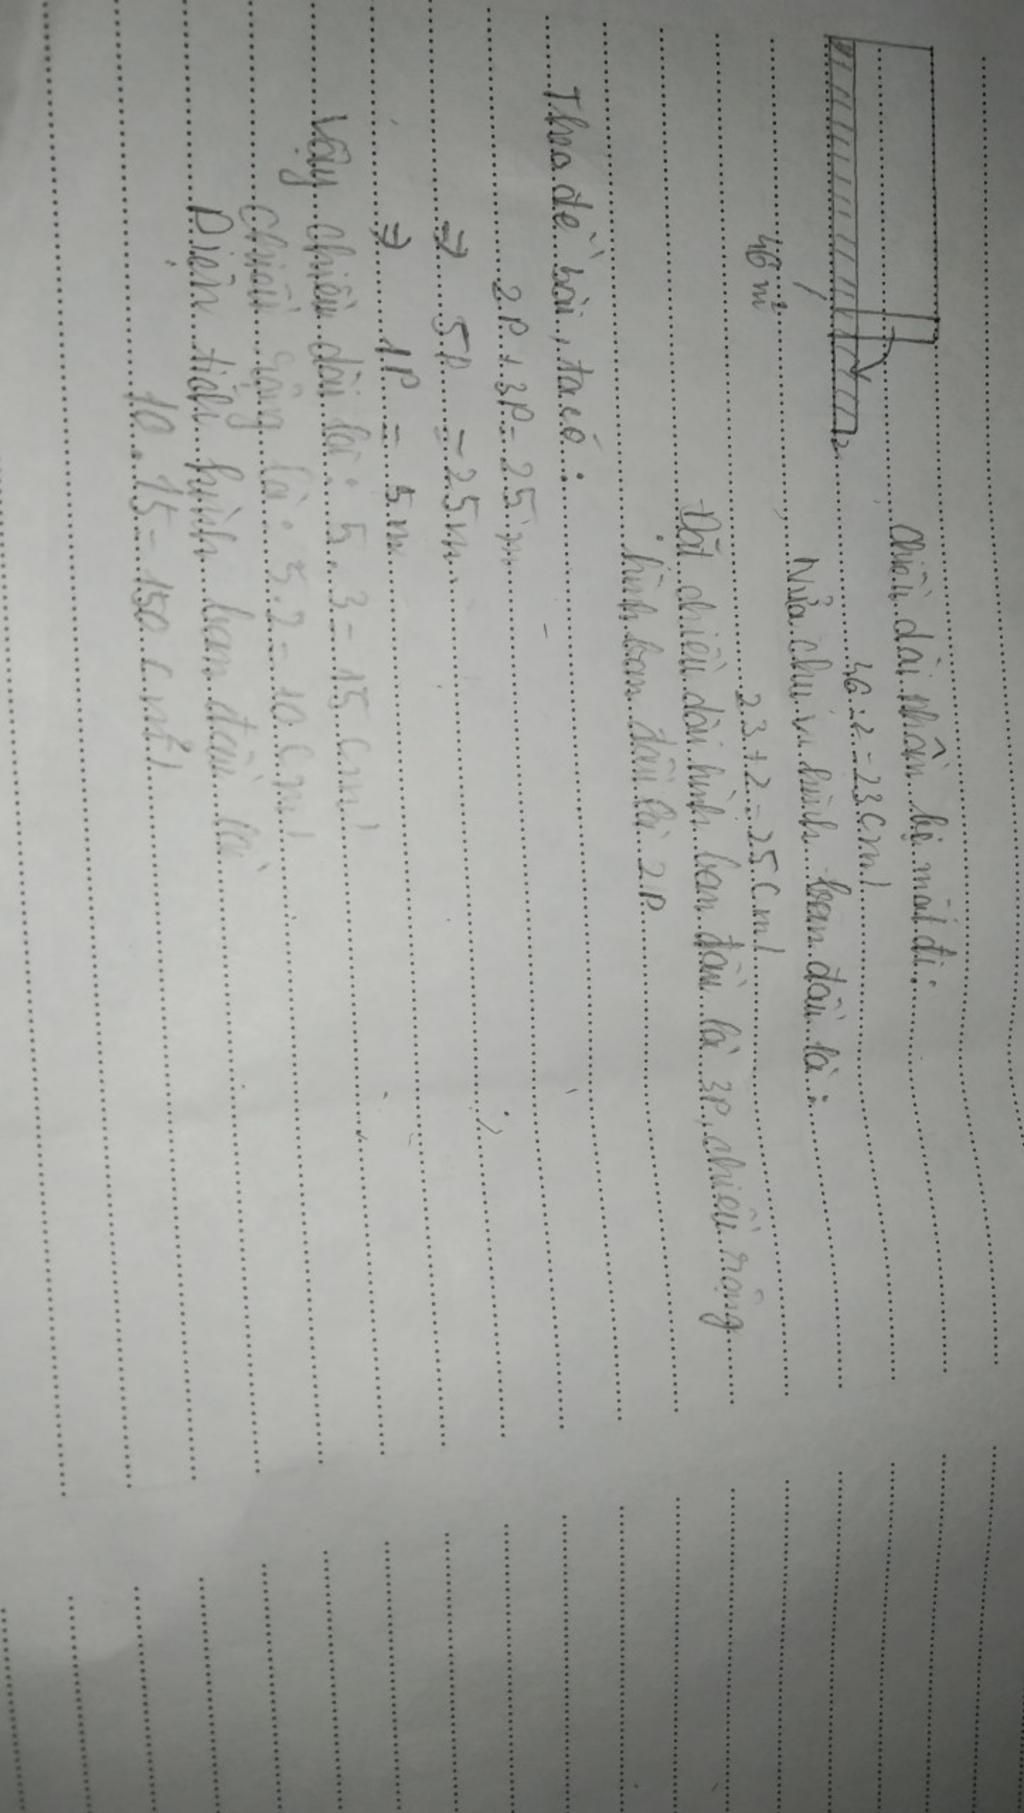 2
46 m²
Chiều dài phần bị mất đi:
46:2=23(m)
Nửa chu vi hình ban đầu là:
23+2=25(m)
Đặt chiều dài hình ban đầu là 3P, chiều rộng
hình ban đầu là 2P
Theo đề bài, ta có:
2P+3P=25m
⇒ 5P = 25m
⇒ 1P = 5m
Vậy chiều dài là: 5.3=15(m)
Chiều rộng là: 5.2=10(m)
Diện tích hình ban đầu là
10.15=150(m²)